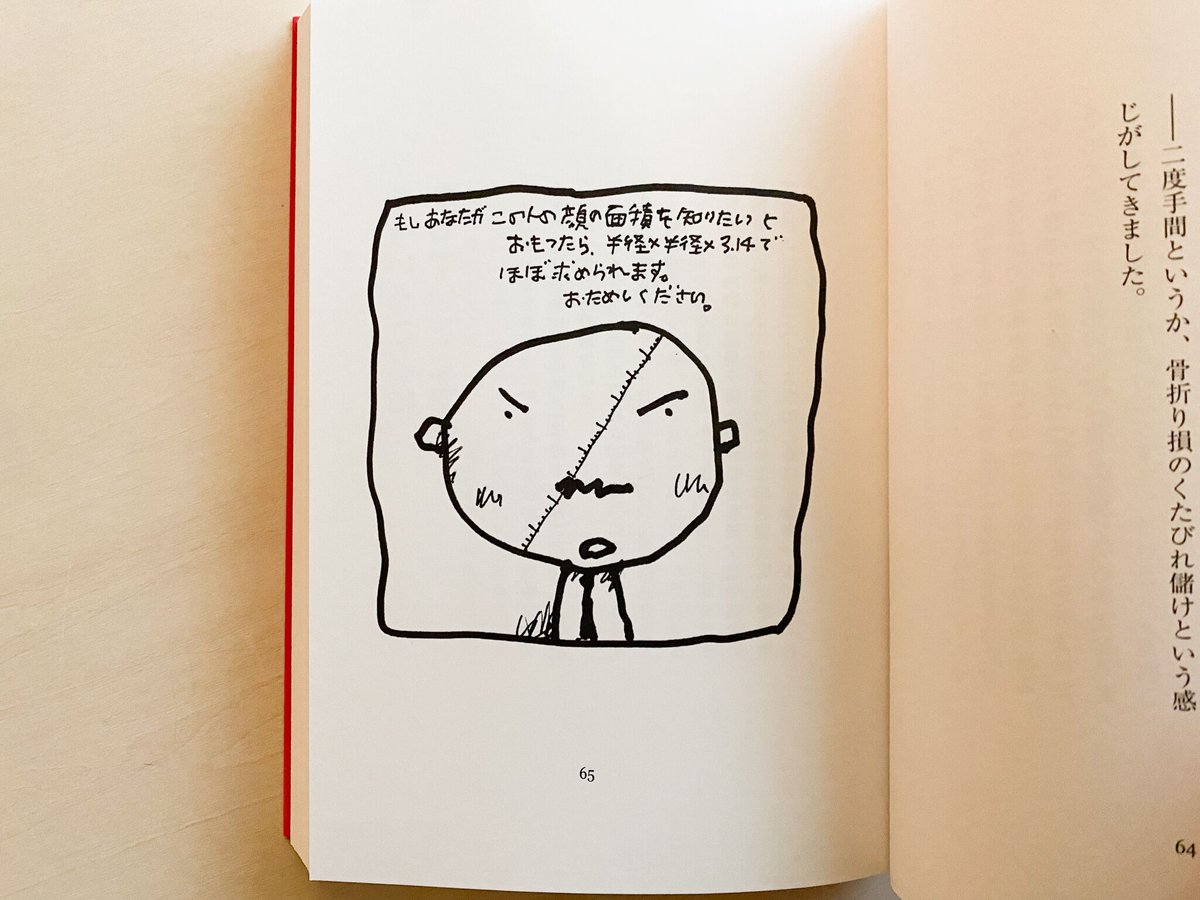 ――二度手間というか、骨折り損のくたびれ儲けという感
じがしてきました。
64
もしあなたがこの人の顔の面積を知りたいと
おもったら、半径×半径×3.14で
ほぼ求められます。
おためしください。
65